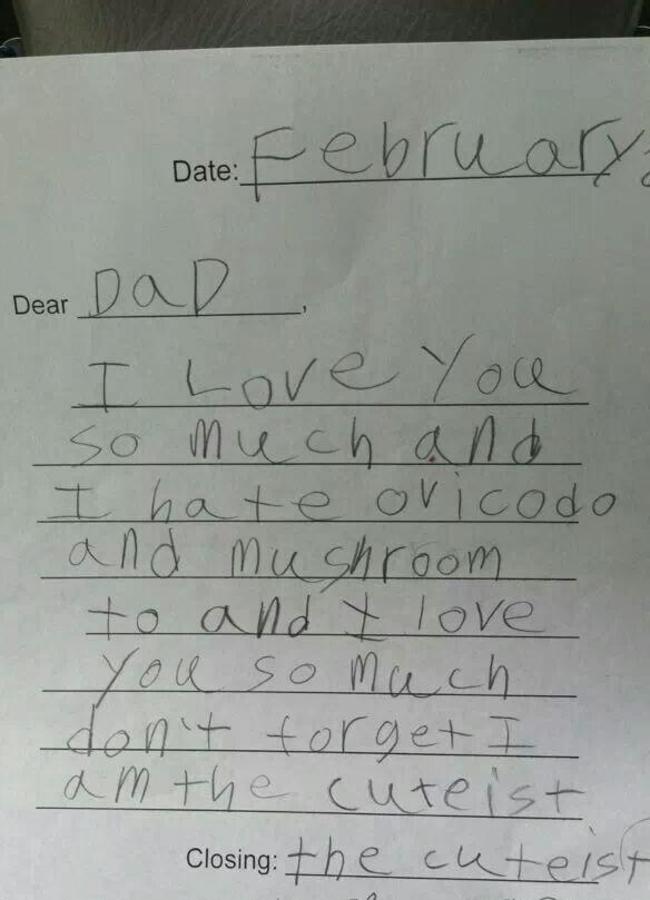 Date: February
Dear DaD,
I Love You
so much and
I hate ovicodo
and mushroom
to and I love
you so much
don't forget I
am the cuteist
Closing: the cuteist